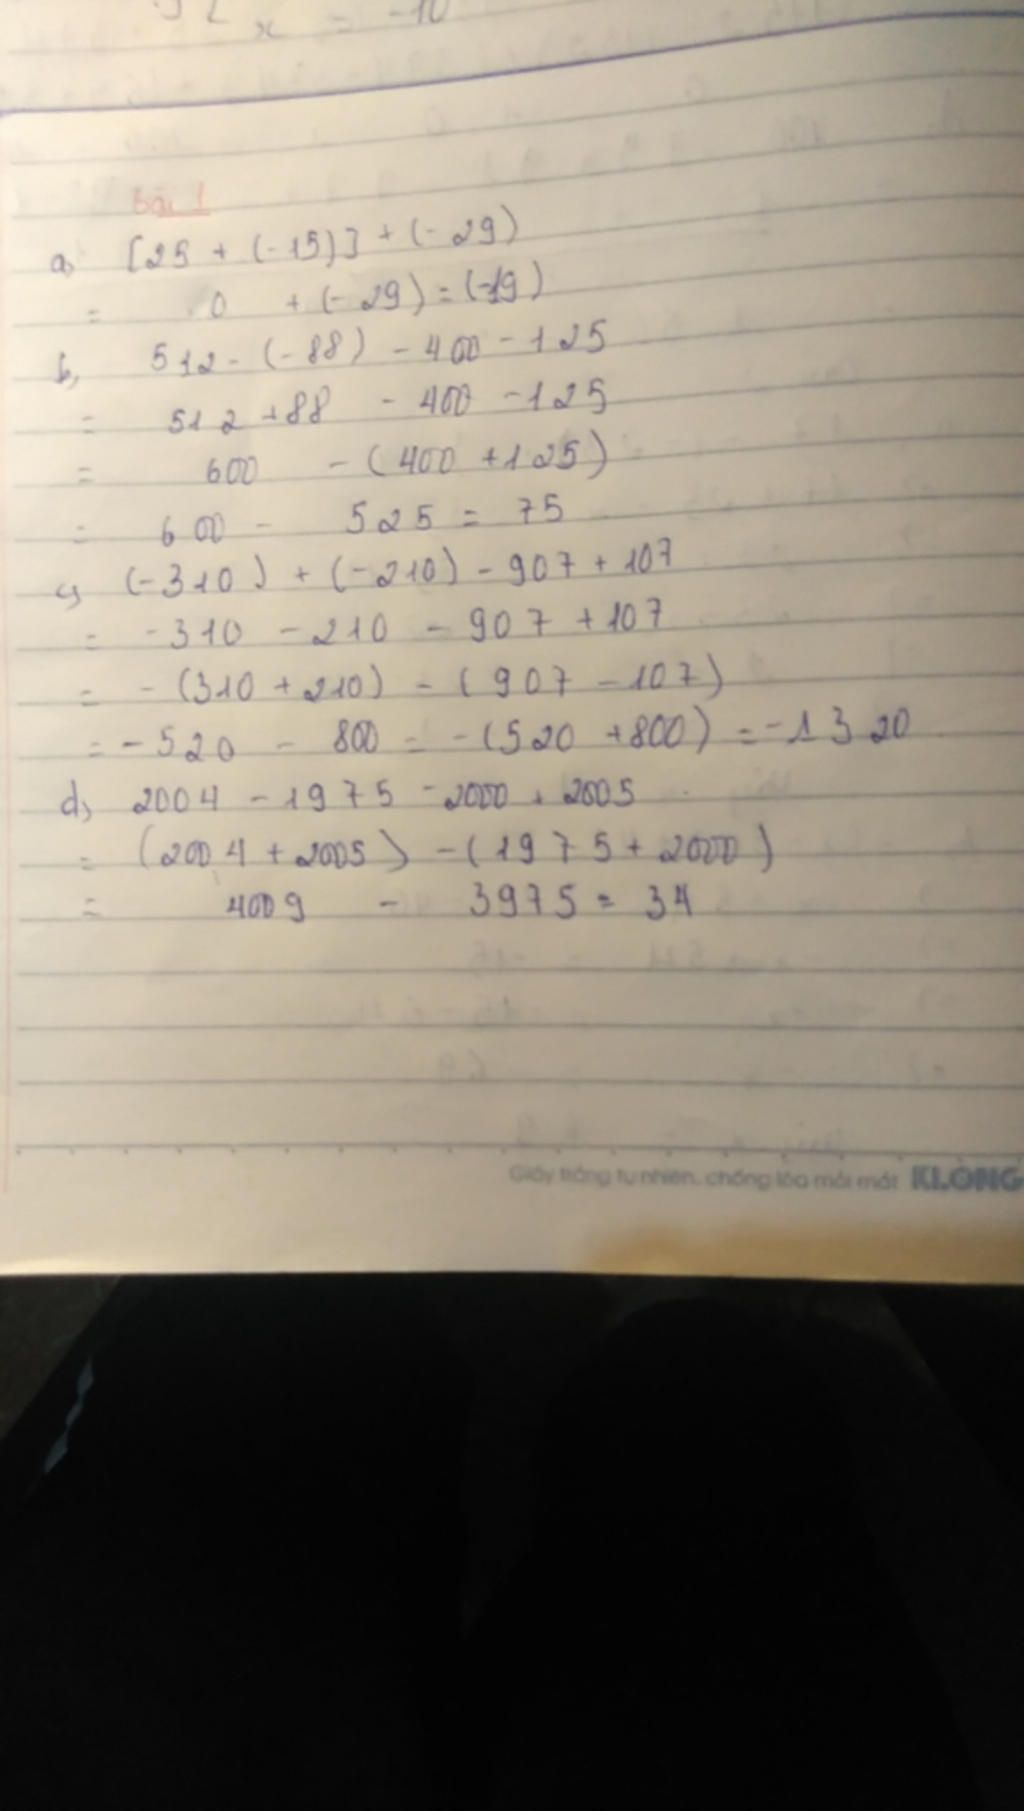 x = -10
Bài 1
a, [25 + (-15)] + (-29)
= 0 + (-29) = (-19)
b, 512 - (-88) - 400 - 125
= 512 + 88 - 400 - 125
= 600 - (400 + 125)
= 600 - 525 = 75
c, (-310) + (-210) - 907 + 107
= -310 - 210 - 907 + 107
= - (310 + 210) - (907 - 107)
= - 520 - 800 = - (520 + 800) = -1320
d, 2004 - 1975 - 2000 + 2005
= (2004 + 2005) - (1975 + 2000)
= 4009 - 3975 = 34
Giấy trắng tự nhiên, chống lóa mỏi mắt KLONG